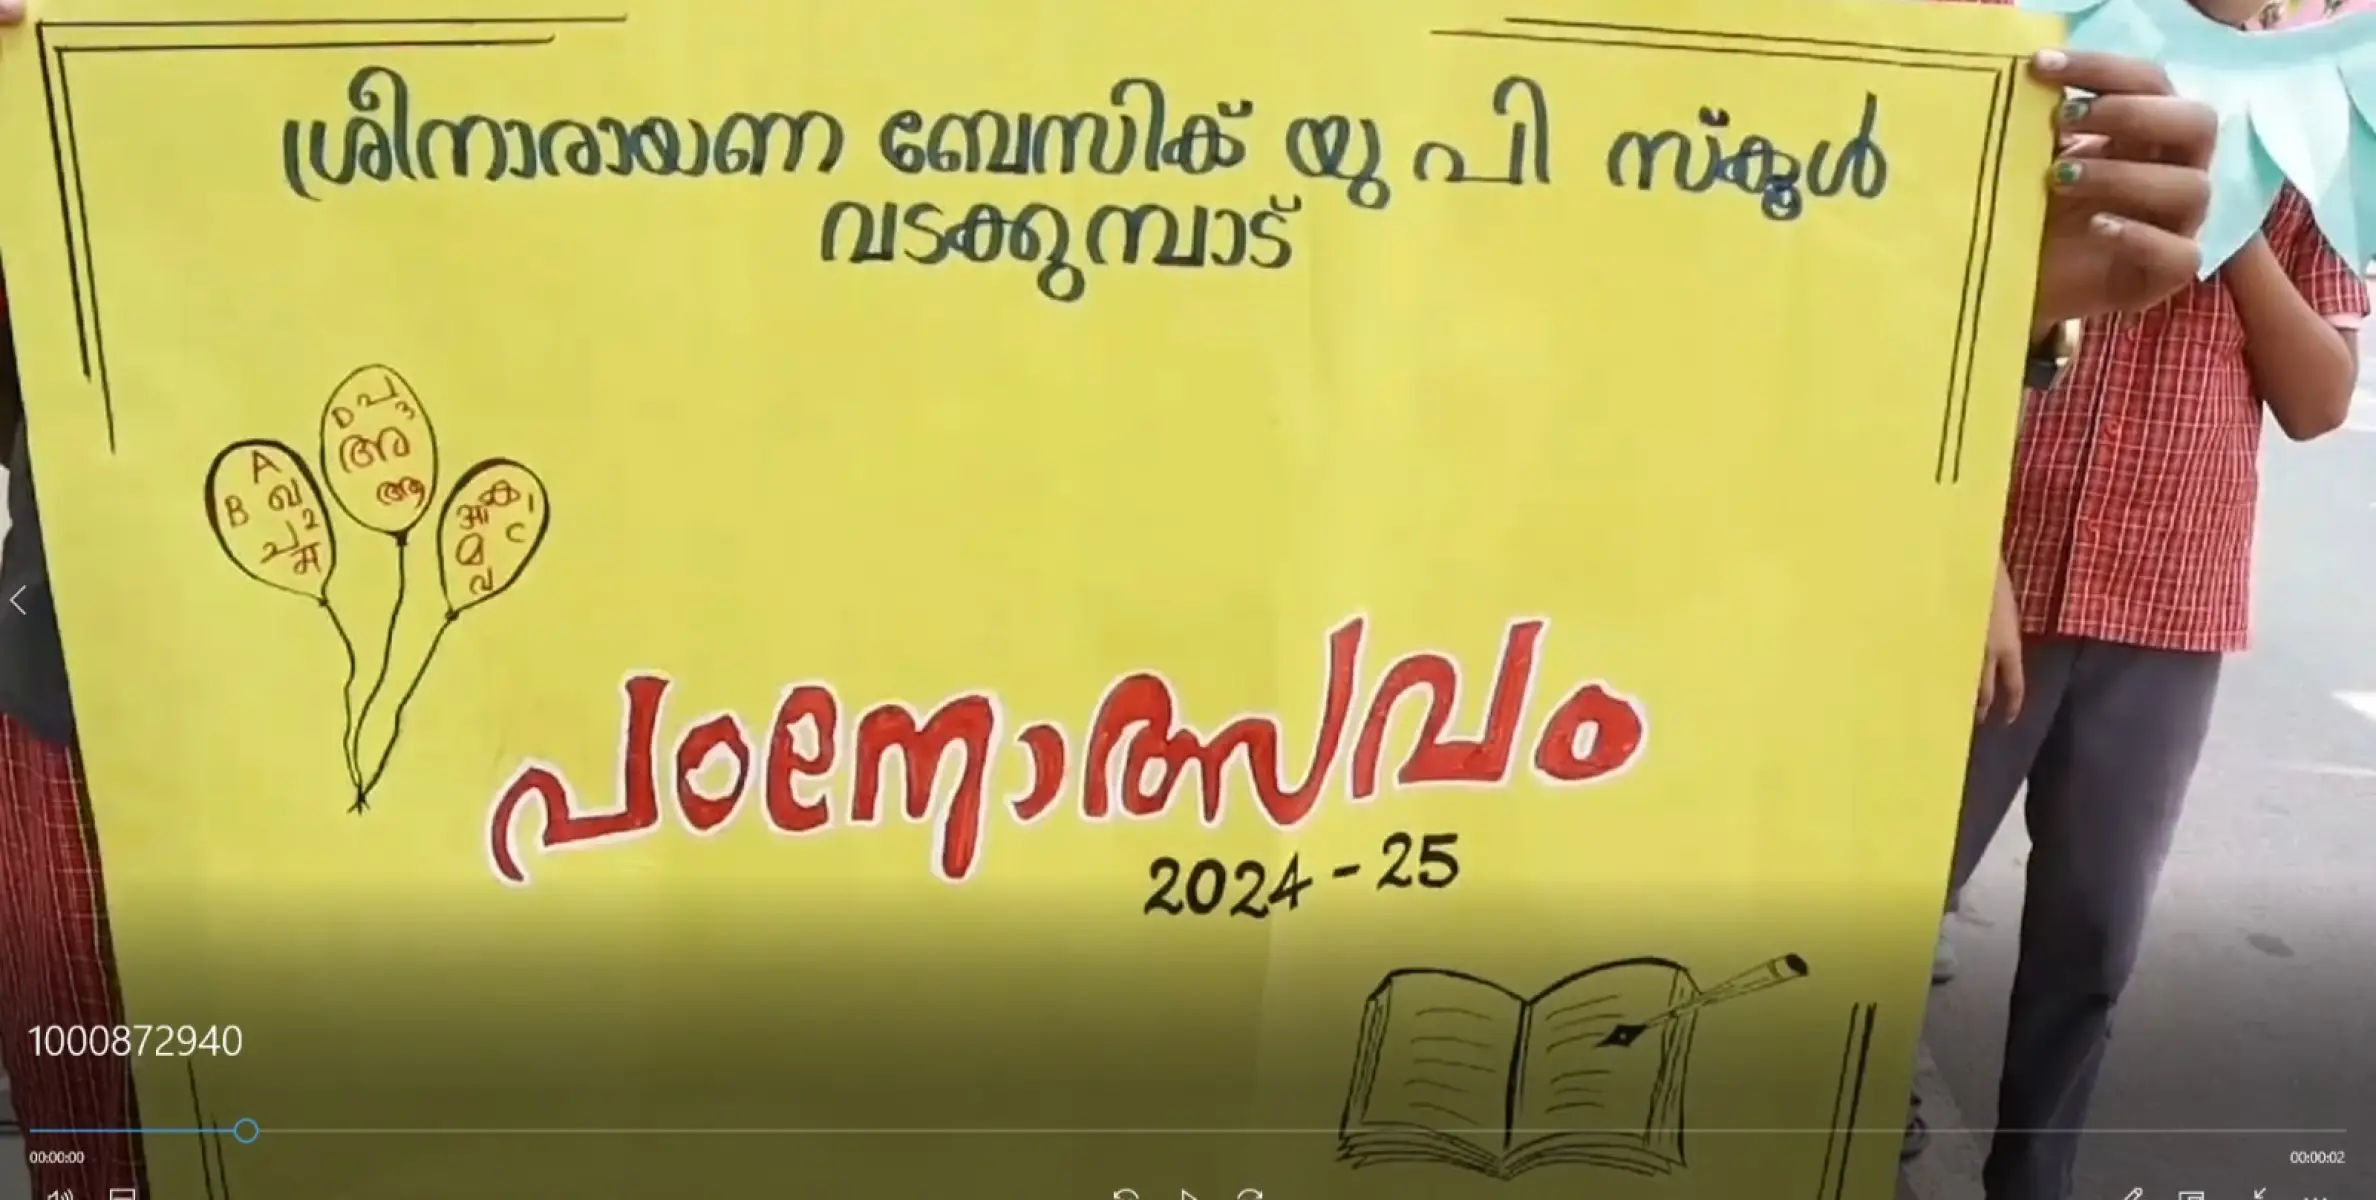 ശ്രീനാരായണ ബേസിക് യു പി സ്കൂൾ
വടക്കുമ്പാട്
D പ ന
അ
ആ
A
B ഖ
2
ച म
ക 1
आ C
മ
വ
പഠനോത്സവം
2024 - 25
1000872940
00:00:00
00:00:02